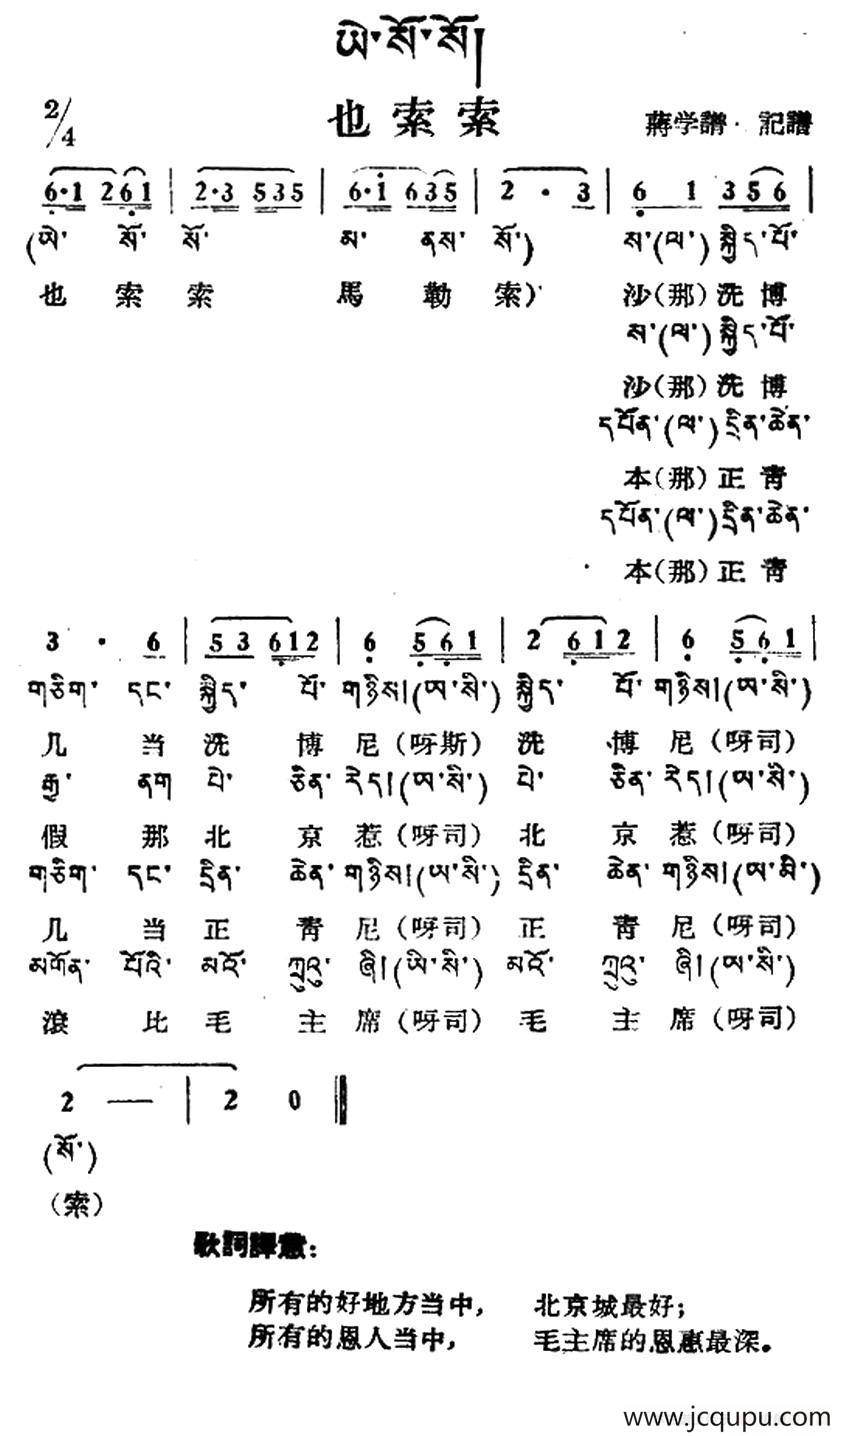 ཡེ་སོ་སོ།
2/4
也索索
蔣学譜·記譜
6·1 261 | 2·3 535 | 6·i 635 | 2 · 3 | 6 1 356 |
(ཡེ་ སོ་ སོ་ མ་ ནས་ སོ་) ས་(ལ་)སྐྱིད་པོ་
也 索 索 馬 勒 索) 沙(那)洗博
ས་(ལ་)སྐྱིད་པོ་
沙(那)洗博
དཔོན་(ལ་)དྲིན་ཆེན་
本(那)正青
དཔོན་(ལ་)དྲིན་ཆེན་
本(那)正青
3 · 6 | 53 612 | 6 561 | 2 612 | 6 561 |
གཅིག་ དང་ སྐྱིད་ པོ་ གཉིས།(ཨ་སི་) སྐྱིད་ པོ་ གཉིས།(ཨ་སི་)
几 当 洗 博 尼(呀斯) 洗 博 尼(呀司)
རྒྱ་ ནག པེ་ ཅིན་ རེད།(ཨ་སི་) པེ་ ཅིན་ རེད།(ཨ་སི་)
假 那 北 京 惹(呀司) 北 京 惹(呀司)
གཅིག་ དང་ དྲིན་ ཆེན་ གཉིས།(ཨ་སི་) དྲིན་ ཆེན་ གཉིས།(ཨ་སི་)
几 当 正 青 尼(呀司) 正 青 尼(呀司)
མགོན་ པོའི་ མའོ་ ཀྲུའུ་ ཞི།(ཡི་སི་) མའོ་ ཀྲུའུ་ ཞི།(ཨ་སི་)
滾 比 毛 主 席(呀司) 毛 主 席(呀司)
2 — | 2 0 ‖
(སོ་)
(索)
歌詞譯意:
所有的好地方当中, 北京城最好;
所有的恩人当中, 毛主席的恩惠最深。
www.jcqupu.com